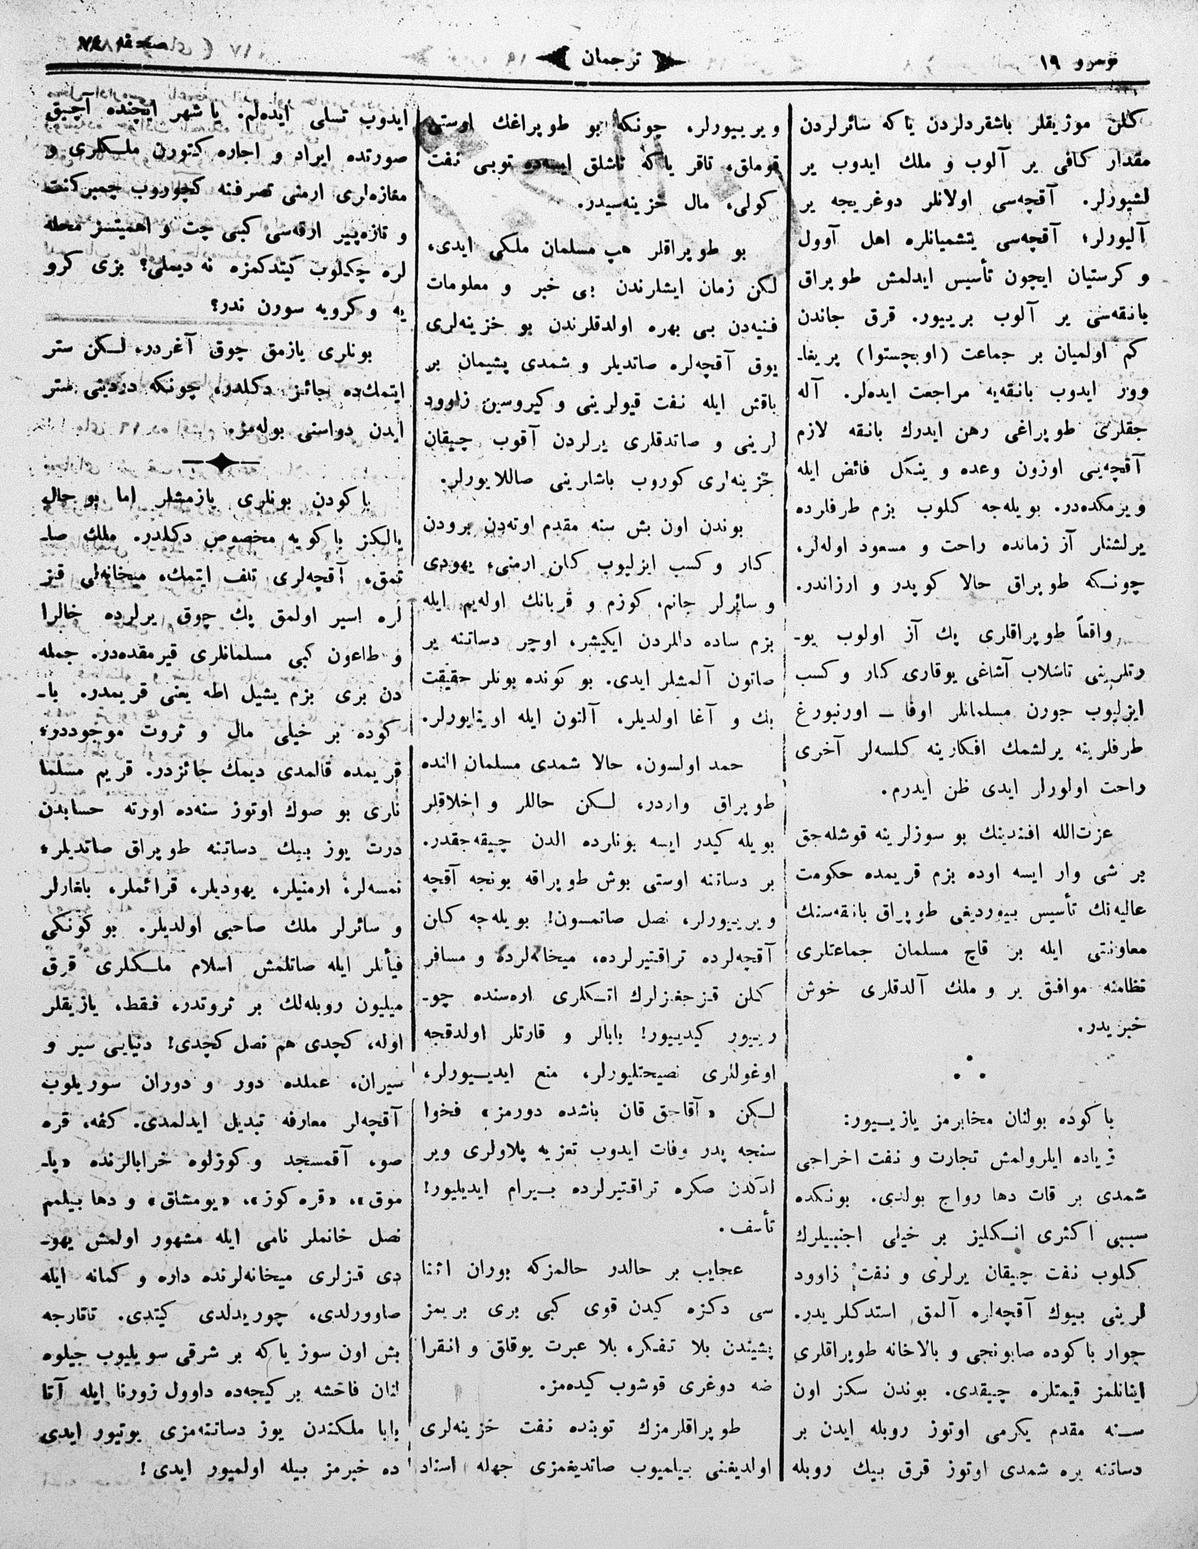 نومرو ١٩
ترجمان
صحيفه
كلن موژيقلر باشقردلردن ياكه سائرلردن
مقدار كافى ير آلوب و ملك ايدوب ير
لشيورلر. آقچه‌سى اولانلر دوغريجه ير
آليورلر؛ آقچه‌سى يتشميانلره اهل آوول
و كرستيان ايچون تأسيس ايدلمش طوپراق
بانقه‌سى ير آلوب بريیور. قرق جاندن
كم اولميان بر جماعت (اوبچستوا) پريغا-
وور ايدوب بانقه‌يه مراجعت ايده‌لر. آله
جقلرى طوپراغى رهن ايدرك بانقه لازم
آقچه‌يى اوزون وعده و ينكل فائض ايله
ويرمكده‌در. بويله‌جه كلوب بزم طرفلرده
يرلشنلر آز زمانده راحت و مسعود اوله‌لر،
چونكه طوپراق حالا كوپدر و ارزاندر.
واقعاً طوپراقلرى پك آز اولوب يو-
رتلرينى تاشلاب آشاغى يوقارى كار و كسب
ايزليوب جورن مسلمانلر اوفا ــ اورنبورغ
طرفلرينه يرلشمك افكارينه كلسه‌لر آخرى
راحت اولورلر ايدى ظن ايدرم.
عزت‌الله افندينك بو سوزلرينه قوشله‌جق
بر شى وار ايسه اوده بزم قريمده حكومت
عاليه‌نك تأسيس بيورديغى طوپراق بانقه‌سنك
معاونتى ايله بر قاچ مسلمان جماعتلرى
نظامنه موافق ير و ملك آلدقلرى خوش
خبريدر.
باكوده بولنان مخابرمز يازيیور:
زياده ايلرولمش تجارت و نفت اخراجى
شمدى بر قات دها رواج بولدى. بونكده
سببى اكثرى انكليز بر خيلى اجنبيلرك
كلوب نفت چيقان يرلرى و نفت زاوود
لرينى بيوك آقچه‌لره آلمق استدكلريدر.
جوار باكوده صابونجى و بالاخانه طوپراقلرى
اينانلمز قيمتلره چيقدى. بوندن سكز اون
سنه مقدم يكرمى اوتوز روبله ايدن بر
دساتنه يره شمدى اوتوز قرق بيك روبله
ويريیورلر، چونكه بو طوپراغك اوستى
قوملق، تاقر ياكه تاشلق ايسه‌ده توبى نفت
كولى، مال خزينه‌سيدر.
بو طوپراقلر هپ مسلمان ملكى ايدى،
لكن زمان ايشلرندن بى خبر و معلومات
فنيه‌دن بى بهره اولدقلرندن بو خزينه‌لرى
يوق آقچه‌لره صاتديلر و شمدى پشيمان بر
باقش ايله نفت قيولرينى و كيروسين زاوود
لرينى و صاتدقلرى يرلردن آقوب چيقان
خزينه‌لرى كوروب باشلرينى صاللايورلر.
بوندن اون بش سنه مقدم اوته‌دن برودن
كار و كسب ايزليوب كلن ارمنى، يهودى
و سائرلر جانم، كوزم و قربانك اوله‌يم ايله
بزم ساده دللردن ايكيشر، اوچر دساتنه ير
صاتون آلمشلر ايدى. بو كونده بونلر حقيقت
بك و آغا اولديلر. آلتون ايله اوينايورلر.
حمد اولسون، حالا شمدى مسلمان النده
طوپراق واردر، لكن حاللر و اخلاقلر
بويله كيدر ايسه بونلرده الدن چيقه‌جقدر.
بر دساتنه اوستى بوش طوپراقه بونجه آقچه
ويريیورلر، نصل صاتمسون! بويله‌جه كلن
آقچه‌لرده تراقتيرلرده، ميخانه‌لرده و مسافر
كلن قزجغزلرك اتكلرى اره‌سنده چو-
ريیور كيديیور! بابالر و قارتلر اولدقجه
اوغوللرى نصيحتليورلر، منع ايديیورلر،
لكن «آقاجق قان باشده دورمز» فحوا
سنجه پدر وفات ايدوب تعزيه پلاولرى وير
لدكدن صكره تراقتيرلرده بيرام ايديليور!
تأسف.
عجايب بر حالدر حالمزكه بوران اثنا
سى دكزه كيدن قوى كبى برى بريمز
پشيندن بلا تفكر، بلا عبرت يوقلق و انقرا
ضه دوغرى قوشوب كيده‌مز.
طوپراقلرمزك توبنده نفت خزينه‌لرى
اولديغنى بيلميوب صاتديغمزى جهله اسناد
ايدوب تسلى ايده‌لم. يا شهر ايچنده آچيق
صورتده ايراد و اجاره كتورن ملكلرى و
مغازه‌لرى ارمنى تصرفنه كچوروب چمبركنت
و تازه‌پير ارقه‌سى كبى چت و اهميتسز محله
لره چكلوب كيتدكمزه نه ديملى؟ بزى كرو
يه و كرويه سورن ندر؟
بونلرى يازمق چوق آغردر، لكن ستر
ايتمك‌ده جائز دكلدر، چونكه دردينى ستر
ايدن دواسنى بوله‌مز.
باكودن بونلرى يازمشلر اما بو حال
يالكز باكويه مخصوص دكلدر. ملك صا-
تمق، آقچه‌لرى تلف ايتمك، ميخانه‌لى قيز
لره اسير اولمق پك چوق يرلرده خالرا
و طاعون كبى مسلمانلرى قيرمقده‌در. جمله
دن برى بزم يشيل اطه يعنى قريمدر. با-
كوده بر خيلى مال و ثروت موجوددر؛
قريمده قالمدى ديمك جائزدر. قريم مسلما
نلرى بو صوك اوتوز سنه‌ده اورته حسابدن
درت يوز بيك دساتنه طوپراق صاتديلر؛
نمسه‌لر، ارمنيلر، يهوديلر، قرائملر، بلغارلر
و سائرلر ملك صاحبى اولديلر. بو كونكى
فيأتلر ايله صاتلمش اسلام ملكلرى قرق
ميليون روبله‌لك بر ثروتدر، فقط، يازيقلر
اوله، كچدى هم نصل كچدى! دنيايى سير و
سيران، عملده دور و دوران سوريلوب
آقچه‌لر معارفه تبديل ايدلمدى. كفه، قره
صو، آقمسجد و كوزلوه خرابالرنده «يا-
موق»، «قره كوز»، «يومشاق» و دها بيلمم
نصل خانملر نامى ايله مشهور اولمش يهو-
دى قزلرى ميخانه‌لرنده داره و كمانه ايله
صاوورلدى، چوريدلدى كيتدى. تاتارجه
بش اون سوز ياكه بر شرقى سويليوب جيلوه
لنان فاخشه بر كيجه‌ده داوول زورنا ايله آتا
بابا ملكندن يوز دساتنه‌مزى يوتيور ايدى
ده خبرمز بيله اولميور ايدى!